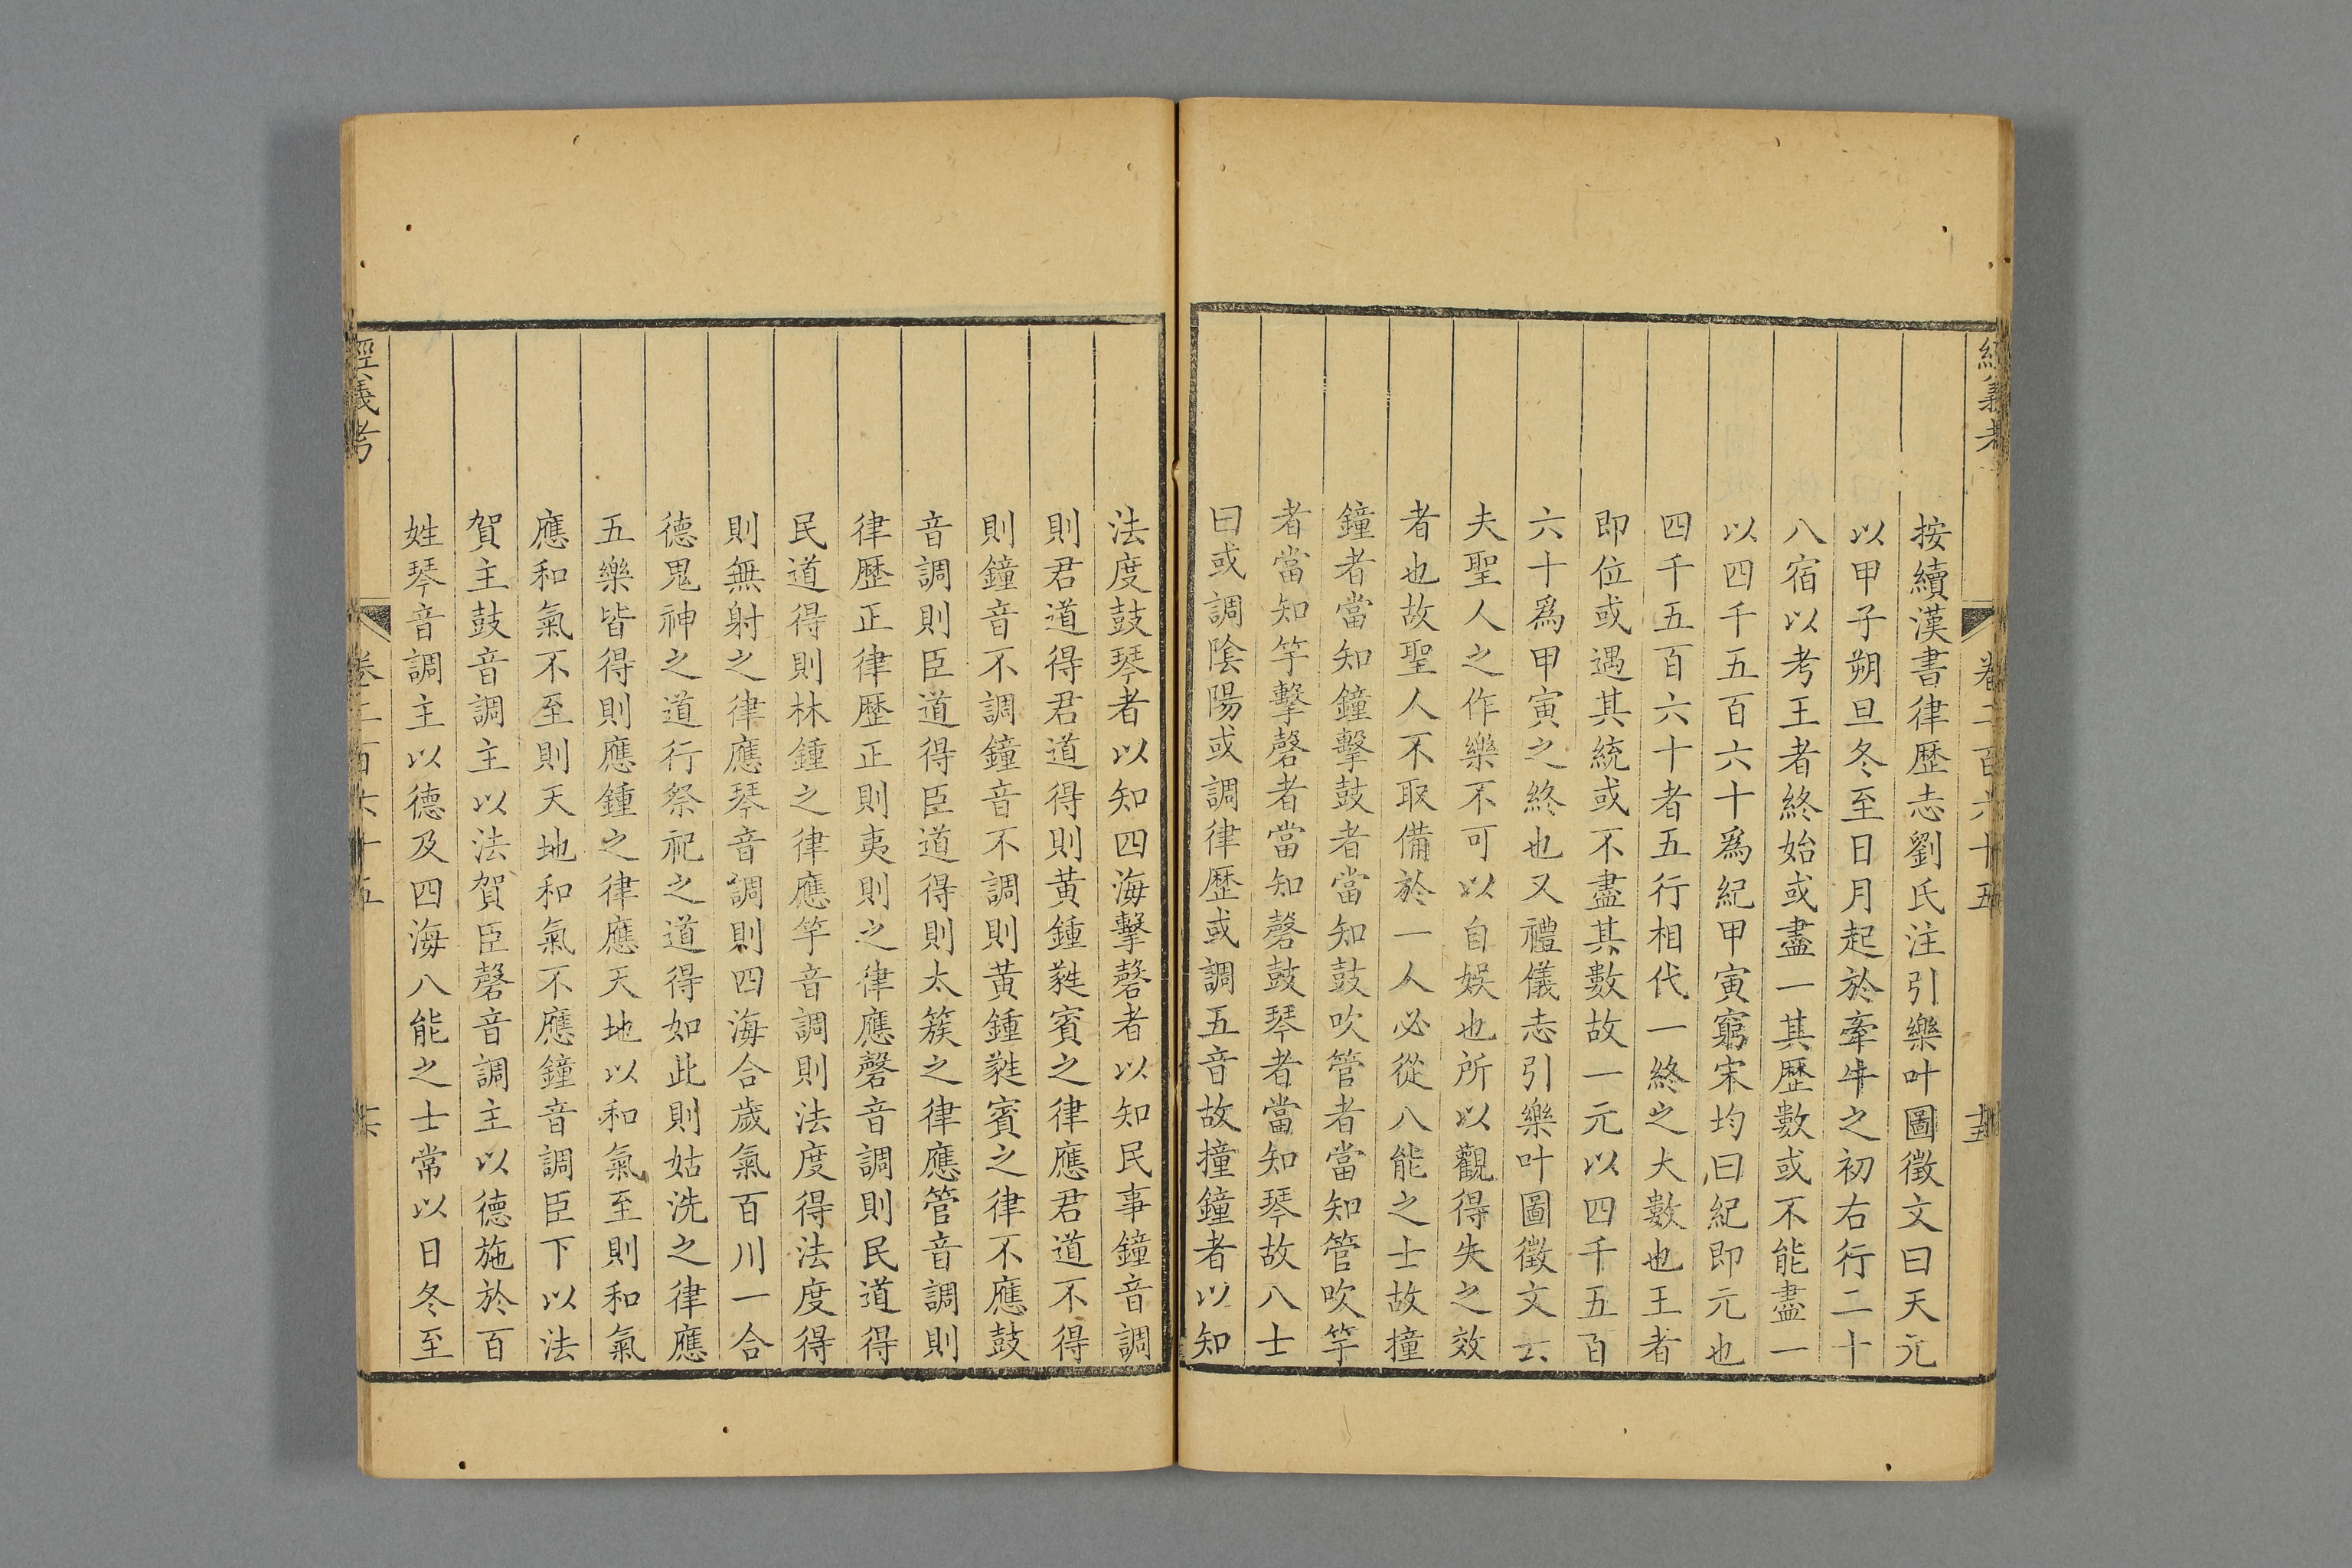 經義考
卷二百六十五
按續漢書律歷志劉氏注引樂叶圖徵文曰天元
以甲子朔旦冬至日月起於牽牛之初右行二十
八宿以考王者終始或盡一其歷數或不能盡一
以四千五百六十爲紀甲寅窮宋均曰紀即元也
四千五百六十者五行相代一終之大數也王者
即位或遇其統或不盡其數故一元以四千五百
六十爲甲寅之終也又禮儀志引樂叶圖徵文云
夫聖人之作樂不可以自娛也所以觀得失之效
者也故聖人不取備於一人必從八能之士故撞
鐘者當知鐘擊鼓者當知鼓吹管者當知管吹竽
者當知竽擊磬者當知磬鼓琴者當知琴故八士
曰或調陰陽或調律歷或調五音故撞鐘者以知
法度鼓琴者以知四海擊磬者以知民事鐘音調
則君道得君道得則黃鍾蕤賓之律應君道不得
則鐘音不調鐘音不調則黃鍾蕤賓之律不應鼓
音調則臣道得臣道得則太簇之律應管音調則
律歷正律歷正則夷則之律應磬音調則民道得
民道得則林鍾之律應竽音調則法度得法度得
則無射之律應琴音調則四海合歲氣百川一合
德鬼神之道行祭祀之道得如此則姑洗之律應
五樂皆得則應鍾之律應天地以和氣至則和氣
應和氣不至則天地和氣不應鐘音調臣下以法
賀主鼓音調主以法賀臣磬音調主以德施於百
姓琴音調主以德及四海八能之士常以日冬至
經義考
卷二百六十五